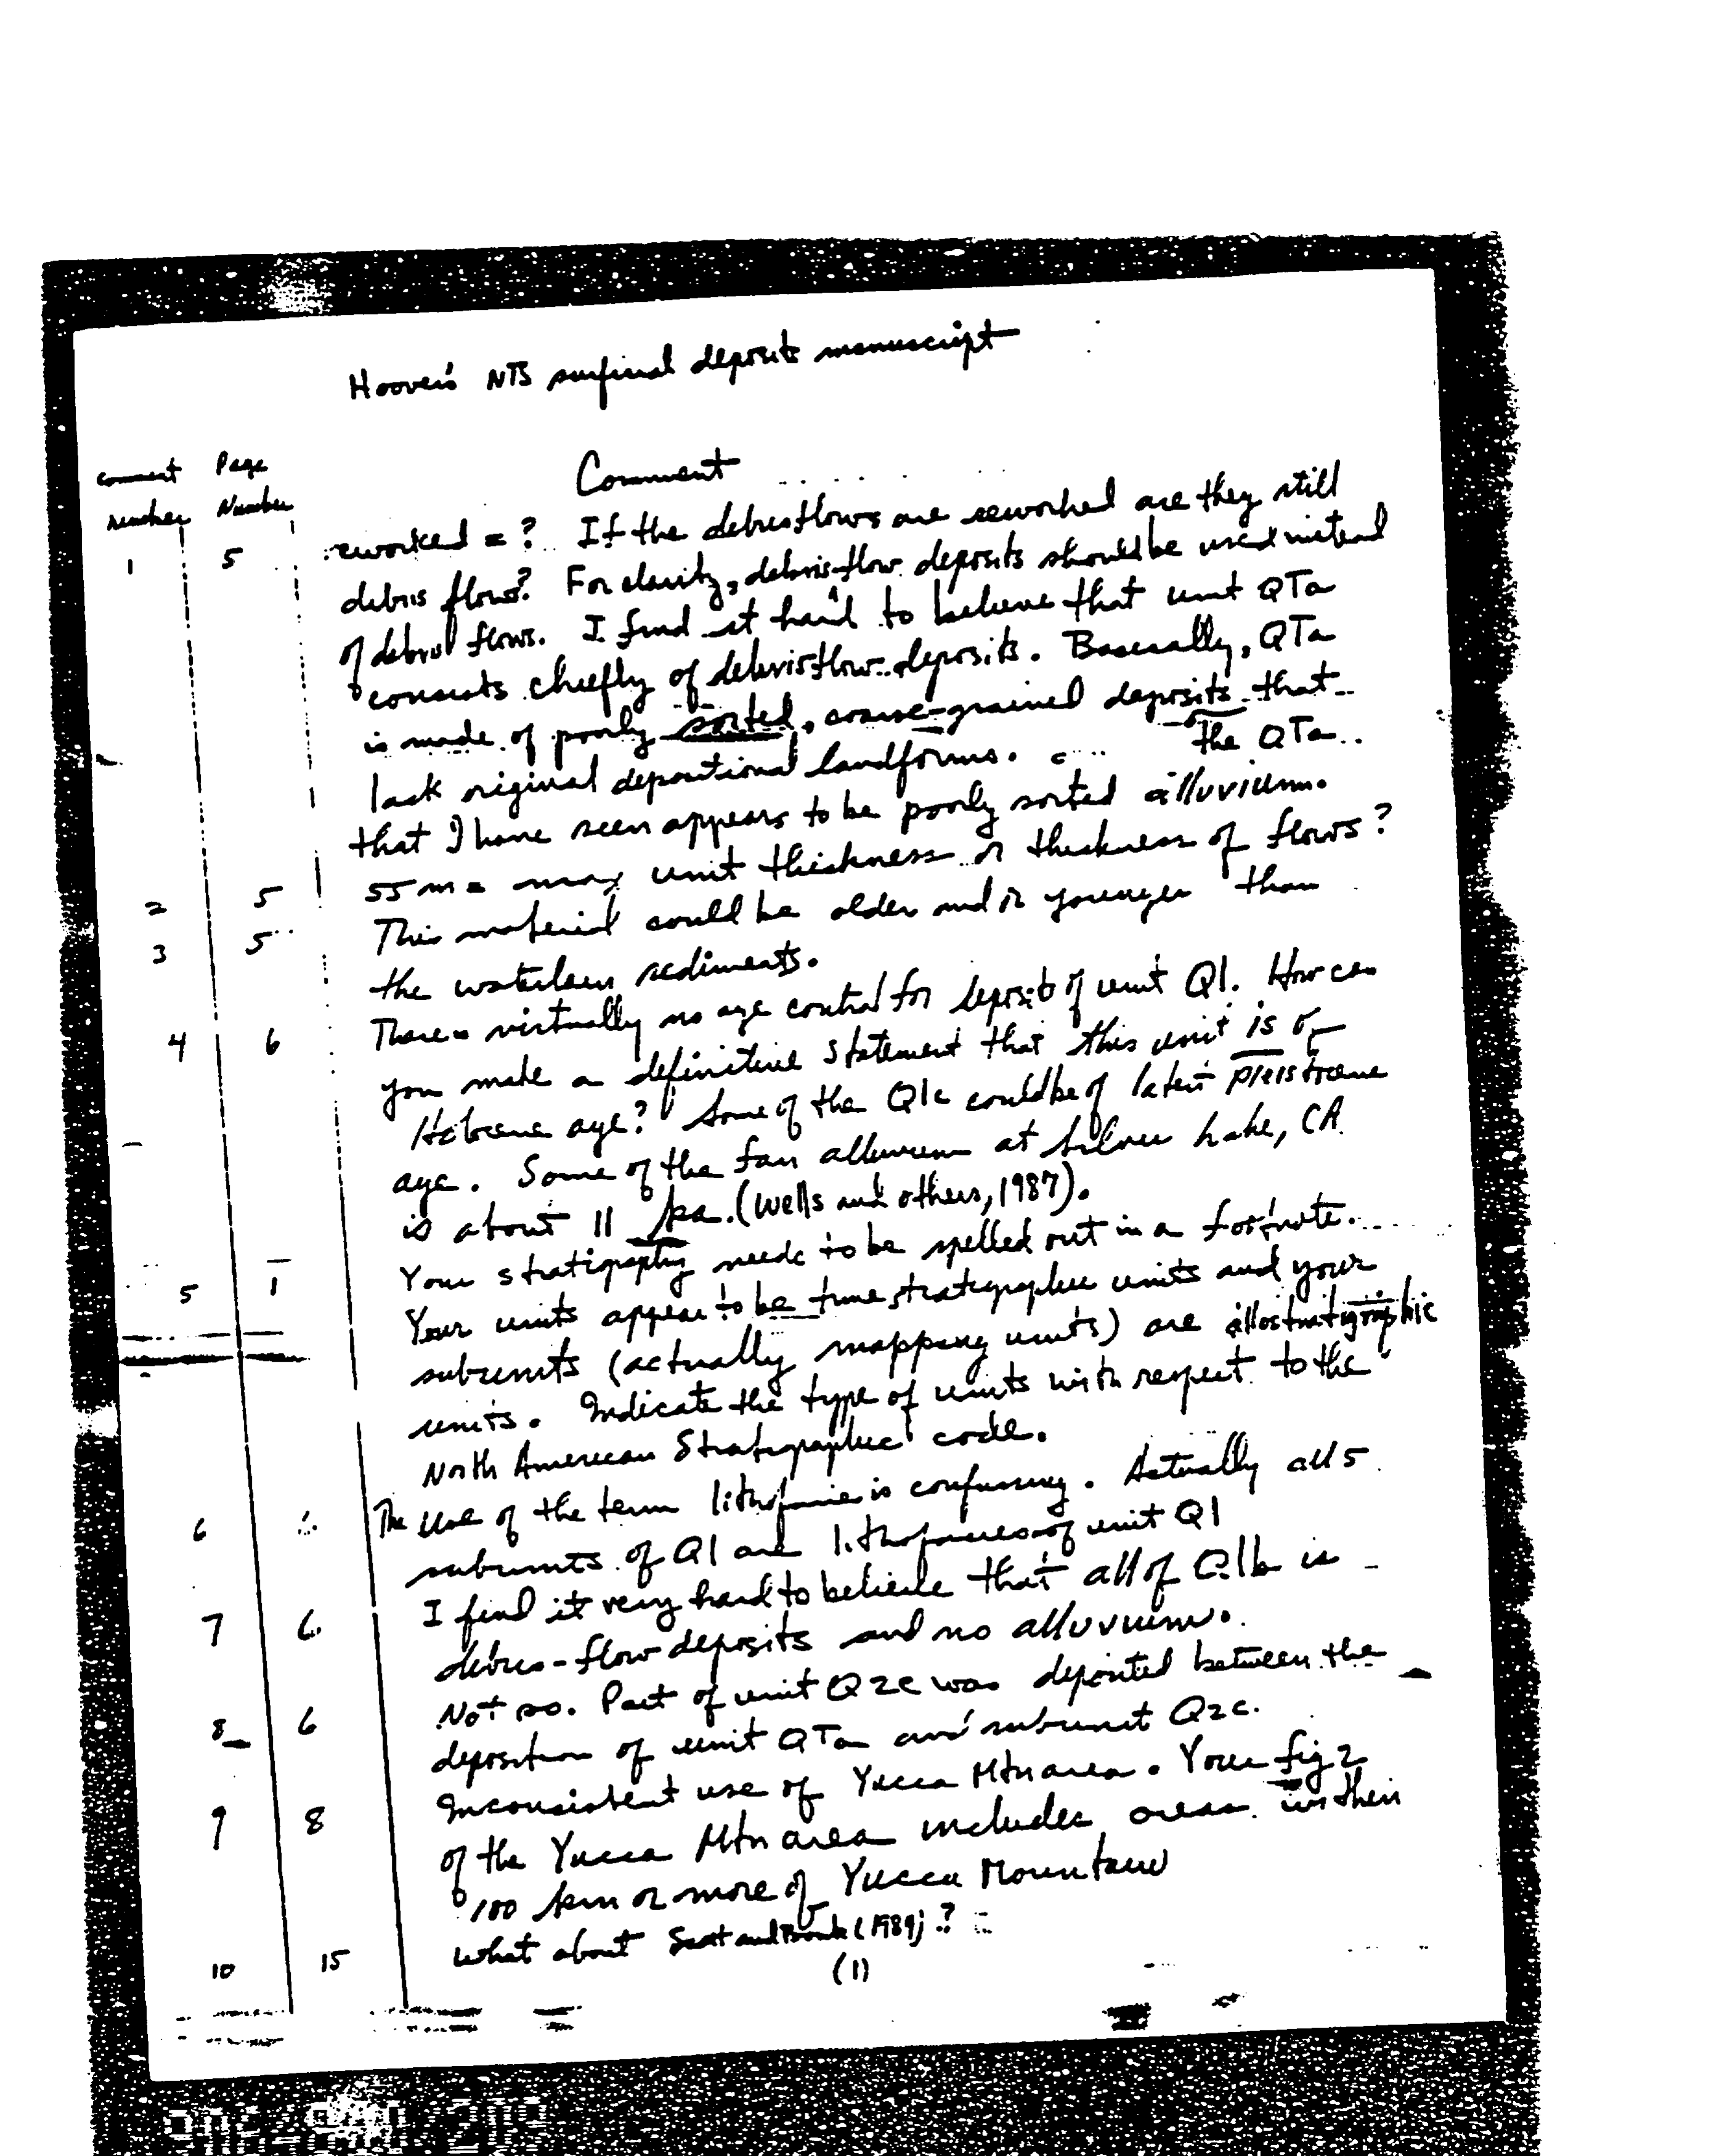 Hoover's NTS surficial deposits manuscript
comment Page
number Number
Comment
1 5 reworked = ? If the debris flows are reworked are they still
debris flows? For clarity, debris-flow deposits should be used instead
of debris flows. I find it hard to believe that unit QTa
consists chiefly of debris flow deposits. Basically, QTa
is made of poorly sorted, coarse-grained deposits that
lack original depositional landforms. The QTa
that I have seen appears to be poorly sorted alluvium.
2 5 55 m = max unit thickness or thickness of flows?
3 5 This material could be older and/or younger than
the waterlain sediments.
4 6 There is virtually no age control for deposits of unit Q1. How can
you make a definitive statement that this unit is of
Holocene age? Some of the Q1c could be of latest Pleistocene
age. Some of the fan alluvium at Silver Lake, CA
is about 11 ka. (Wells and others, 1987).
5 1 Your stratigraphy needs to be spelled out in a footnote.
Your units appear to be time stratigraphic units and your
subunits (actually mapping units) are allostratigraphic
units. Indicate the type of units with respect to the
North American Stratigraphic code.
6 The use of the term lithofacies is confusing. Actually all 5
subunits of Q1 are lithofacies of unit Q1
7 6 I find it very hard to believe that all of Q1b is
debris-flow deposits and no alluvium.
8 6 Not so. Part of unit Q2c was deposited between the
deposition of unit QTa and subunit Q2c.
9 8 Inconsistent use of Yucca Mtn area. Your fig 2
of the Yucca Mtn area includes areas within
100 km or more of Yucca Mountain
10 15 What about Scott and (1984)?
(1)